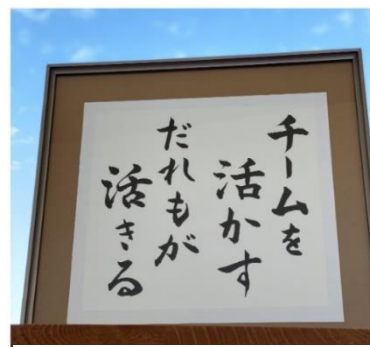 チームを
活かす
だれもが
活きる